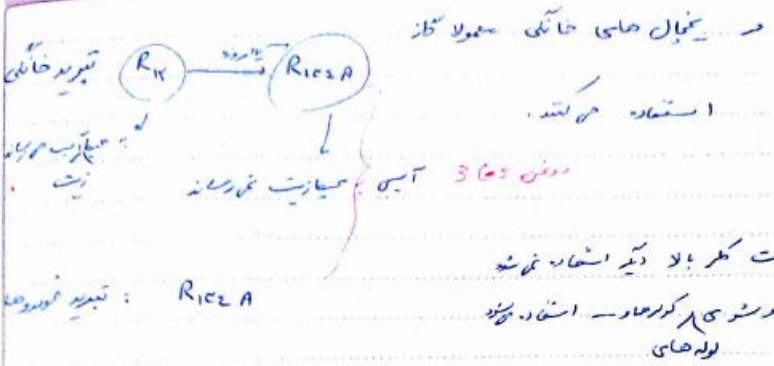 در یخچال های خانگی معمولا گاز
تبرید خانگی R۱۲ امروزه R۱۳۴A
استفاده می کنند.
به محیط آسیب می رساند
زیست
آسیبی به محیط زیست نمی رساند روغن 3GS
ت کلر بالا دیگر استفاده نمی شود
تبرید خودروها : R۱۳۴A
و شوی کولرها استفاده می شود
لوله های